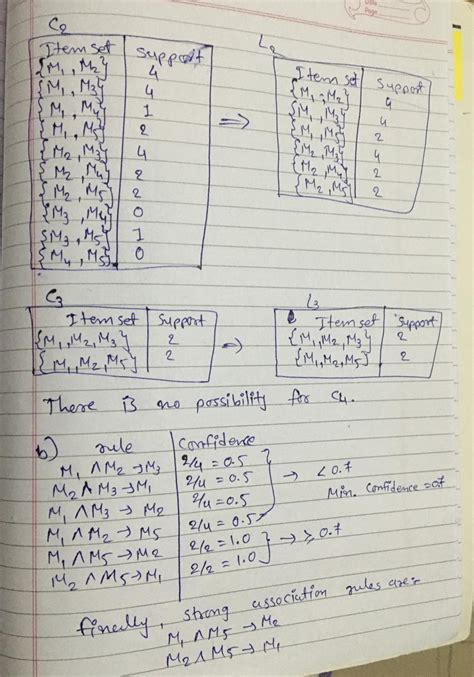 Date
Page
C2
Itemset Support
{M1, M2} 4
{M1, M3} 4
{M1, M4} 1
{M1, M5} 2
{M2, M3} 4
{M2, M4} 2
{M2, M5} 2
{M3, M4} 0
{M3, M5} 1
{M4, M5} 0
⇒
L2
Itemset Support
{M1, M2} 4
{M1, M3} 4
{M1, M5} 2
{M2, M3} 4
{M2, M4} 2
{M2, M5} 2
C3
Itemset Support
{M1, M2, M3} 2
{M1, M2, M5} 2
⇒
L3
Itemset Support
{M1, M2, M3} 2
{M1, M2, M5} 2
There is no possibility for C4.
b) rule Confidence
M1 ∧ M2 → M3 2/4 = 0.5
M2 ∧ M3 → M1 2/4 = 0.5
M1 ∧ M3 → M2 2/4 = 0.5
M1 ∧ M2 → M5 2/4 = 0.5
→ < 0.7
Min. Confidence = 0.7
M1 ∧ M5 → M2 2/2 = 1.0
M2 ∧ M5 → M1 2/2 = 1.0
→ ≥ 0.7
finally, strong association rules are:-
M1 ∧ M5 → M2
M2 ∧ M5 → M1